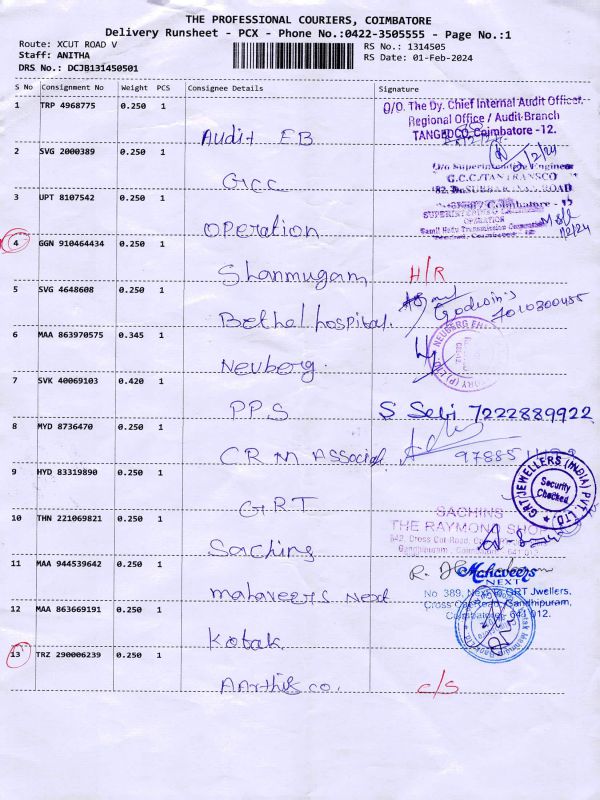 THE PROFESSIONAL COURIERS, COIMBATORE
Delivery Runsheet - PCX - Phone No.:0422-3505555 - Page No.:1
Route: XCUT ROAD V
RS No.: 1314505
Staff: ANITHA
RS Date: 01-Feb-2024
DRS No.: DCJB131450501
S No Consignment No Weight PCS Consignee Details Signature
1 TRP 4968775 0.250 1
O/O. The Dy. Chief Internal Audit Officer,
Regional Office / Audit Branch
TANGEDCO, Coimbatore - 12.
Audit EB
2 SVG 2000389 0.250 1
1/2/24
O/o Superintending Engineer
G.C.C/TANTRANSCO
GCC
3 UPT 8107542 0.250 1
Coimbatore
SUPERINTENDING
OPERATION
Tamil Nadu Transmission Corporation
1/2/24
Operation
4 GGN 910464434 0.250 1
Shanmugam H/R
5 SVG 4648608 0.250 1
Godwin's
7010300455
Bethel hospital.
6 MAA 863970575 0.345 1
Neuberg.
7 SVK 40069103 0.420 1
PPS
S Selvi 7222889922
8 MYD 8736470 0.250 1
CRM Associat
9 HYD 83319890 0.250 1
GRT JEWELLERS (INDIA) PVT. LTD.
Security
Checked
GRT
10 THN 221069821 0.250 1
SACHINS
THE RAYMOND SHOP
642, Cross Cut Road,
Gandhipuram, Coimbatore - 641 012
Sachins
11 MAA 944539642 0.250 1
Mahaveers
NEXT
No 389, Next to GRT Jwellers,
Cross Cut Road, Gandhipuram,
Coimbatore - 641 012.
mahaveers Next
12 MAA 863669191 0.250 1
Kotak
13 TRZ 290006239 0.250 1
Aarthik co. C/S